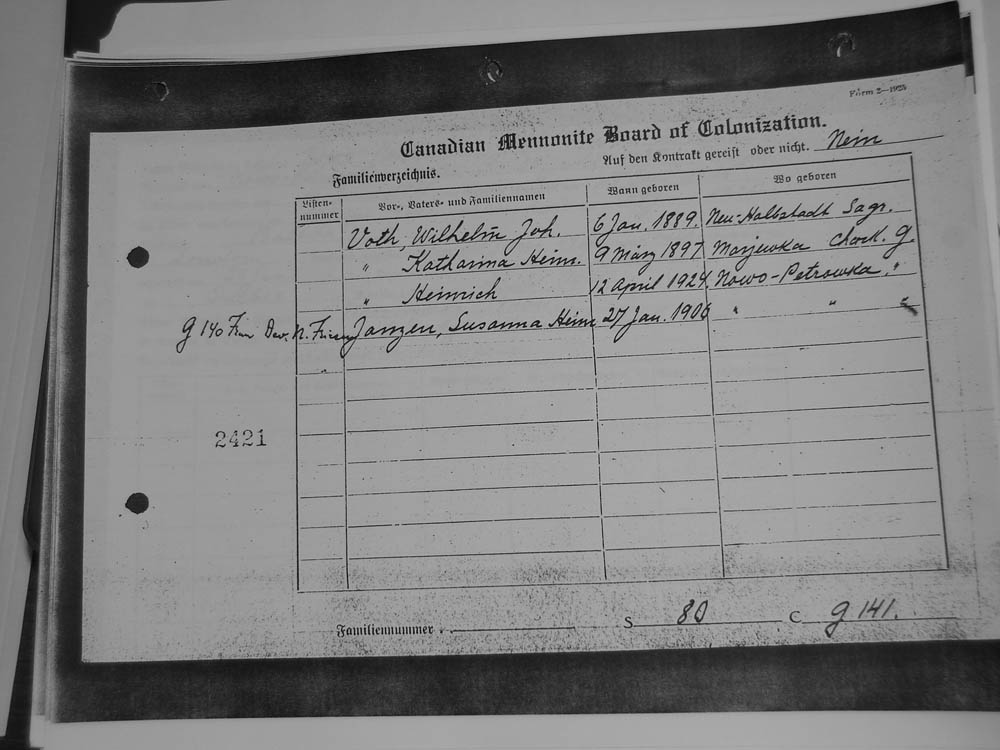 Form 2—1925
Canadian Mennonite Board of Colonization.
Familienverzeichnis. Auf den Kontrakt gereist oder nicht. Nein
Listen-nummer Vor-, Vaters- und Familiennamen Wann geboren Wo geboren
Voth, Wilhelm Joh. 6 Jan. 1889. Neu-Halbstadt Sagr.
" Katharina Heinr. 9 März 1897 Marjewka G.
" Heinrich 12 April 1924. Nowo-Petrowka "
g 140 Dav. N. Janzen, Susanna Heinr 27 Jan. 1906 " " "
2421
Familiennummer S 80 C g 141.